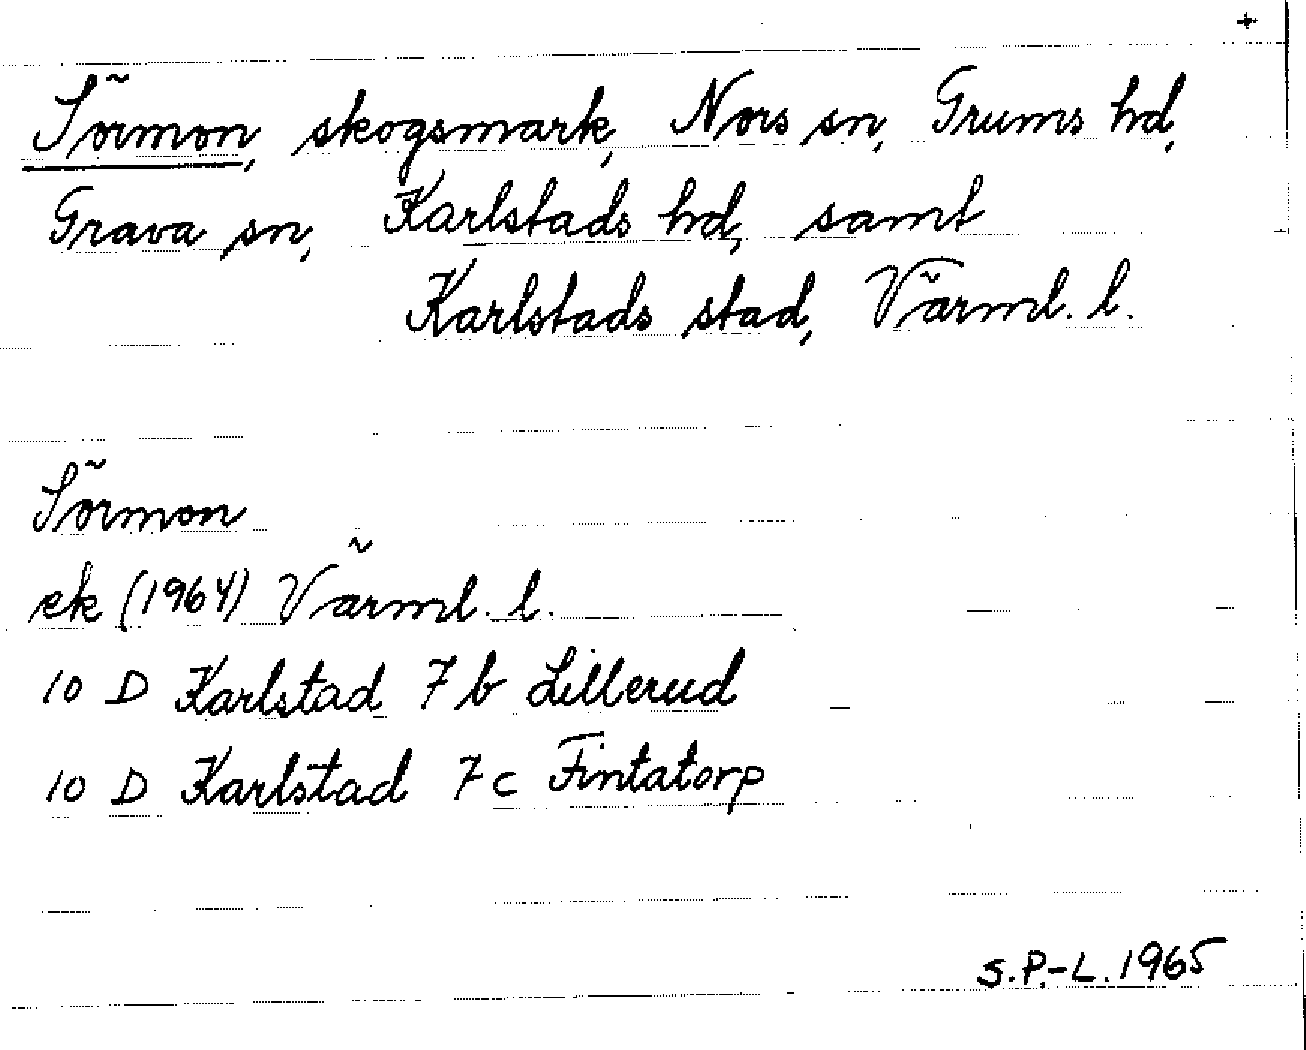 +
Sörmon, skogsmark, Nors sn, Grums hd,
Grava sn, Karlstads hd, samt
Karlstads stad, Värml. l.
Sörmon
ek (1964) Värml. l.
10 D Karlstad 7 b Lillerud
10 D Karlstad 7 c Fintatorp
S.P.-L. 1965